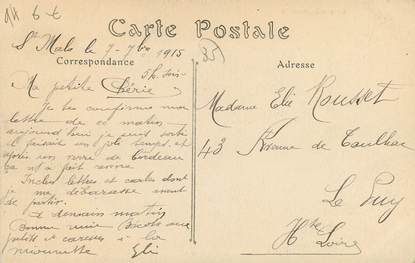 Carte Postale
St Malo le 7-7bre 1915
35
Correspondance
Adresse
Ma petite Chérie
Je te confirme ma
lettre de ce matin
aujourd'hui je suis sorti
il faisait un joli temps et
après un verre de bordeau
ça m'a fait
lettres et cartes dont
je me débarasse avant
de partir.
demain matin
Bonne nuit
petits et caresses à la
Elie
Madame Elie Rousset
43 Avenue de Taulhac
Le Puy
Hte Loire